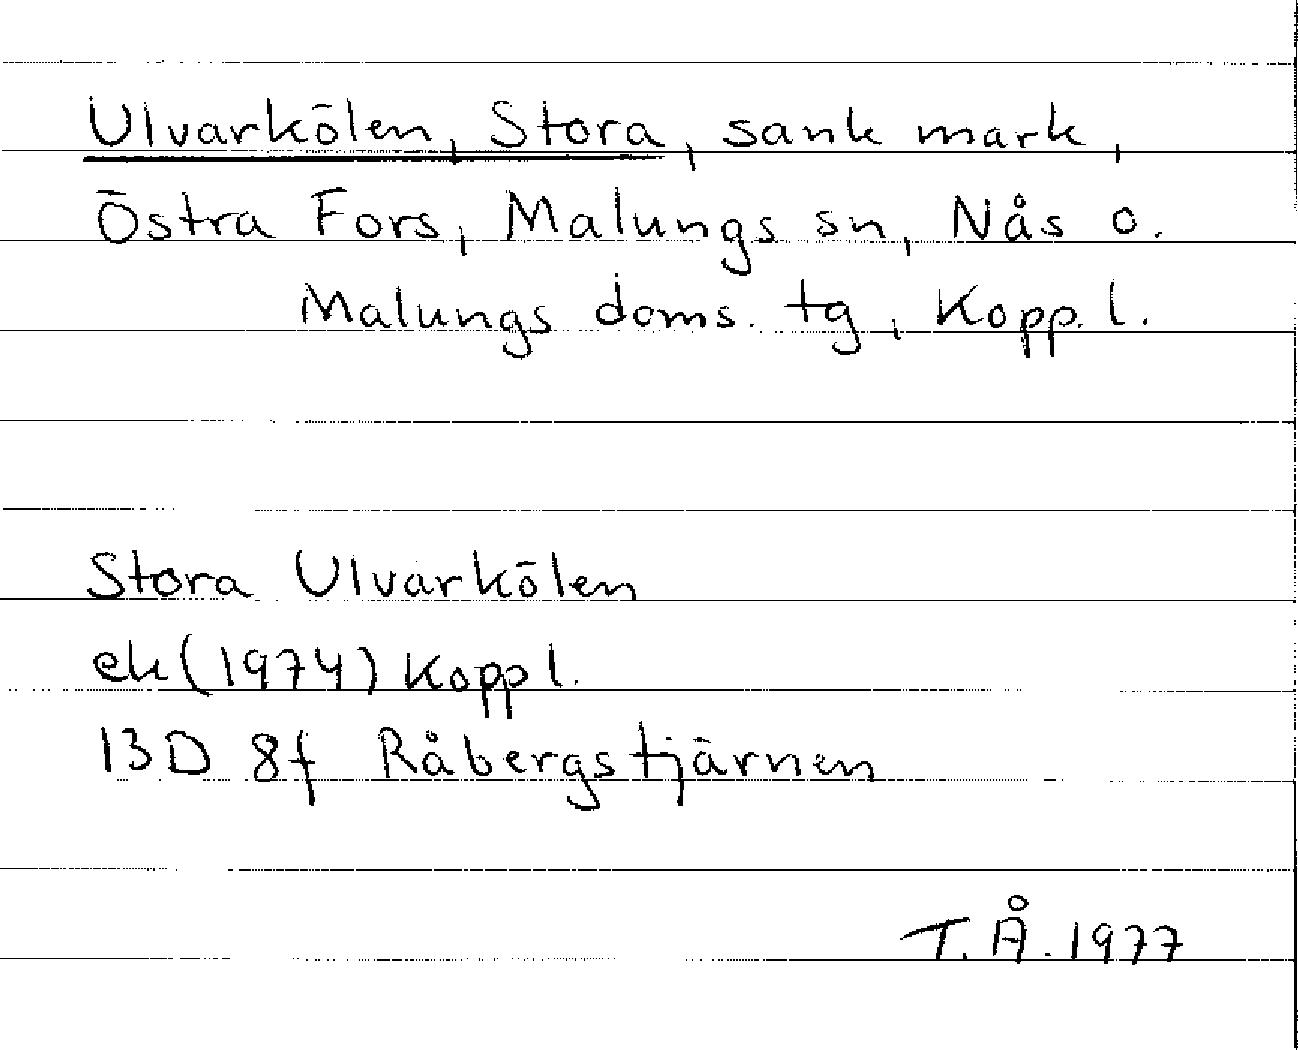 Ulvarkölen, Stora, sank mark,
Östra Fors, Malungs sn, Nås o.
Malungs doms. tg, Kopp. l.
Stora Ulvarkölen
ek (1974) Kopp l.
13D 8f Råbergstjärnen
T.Å. 1977